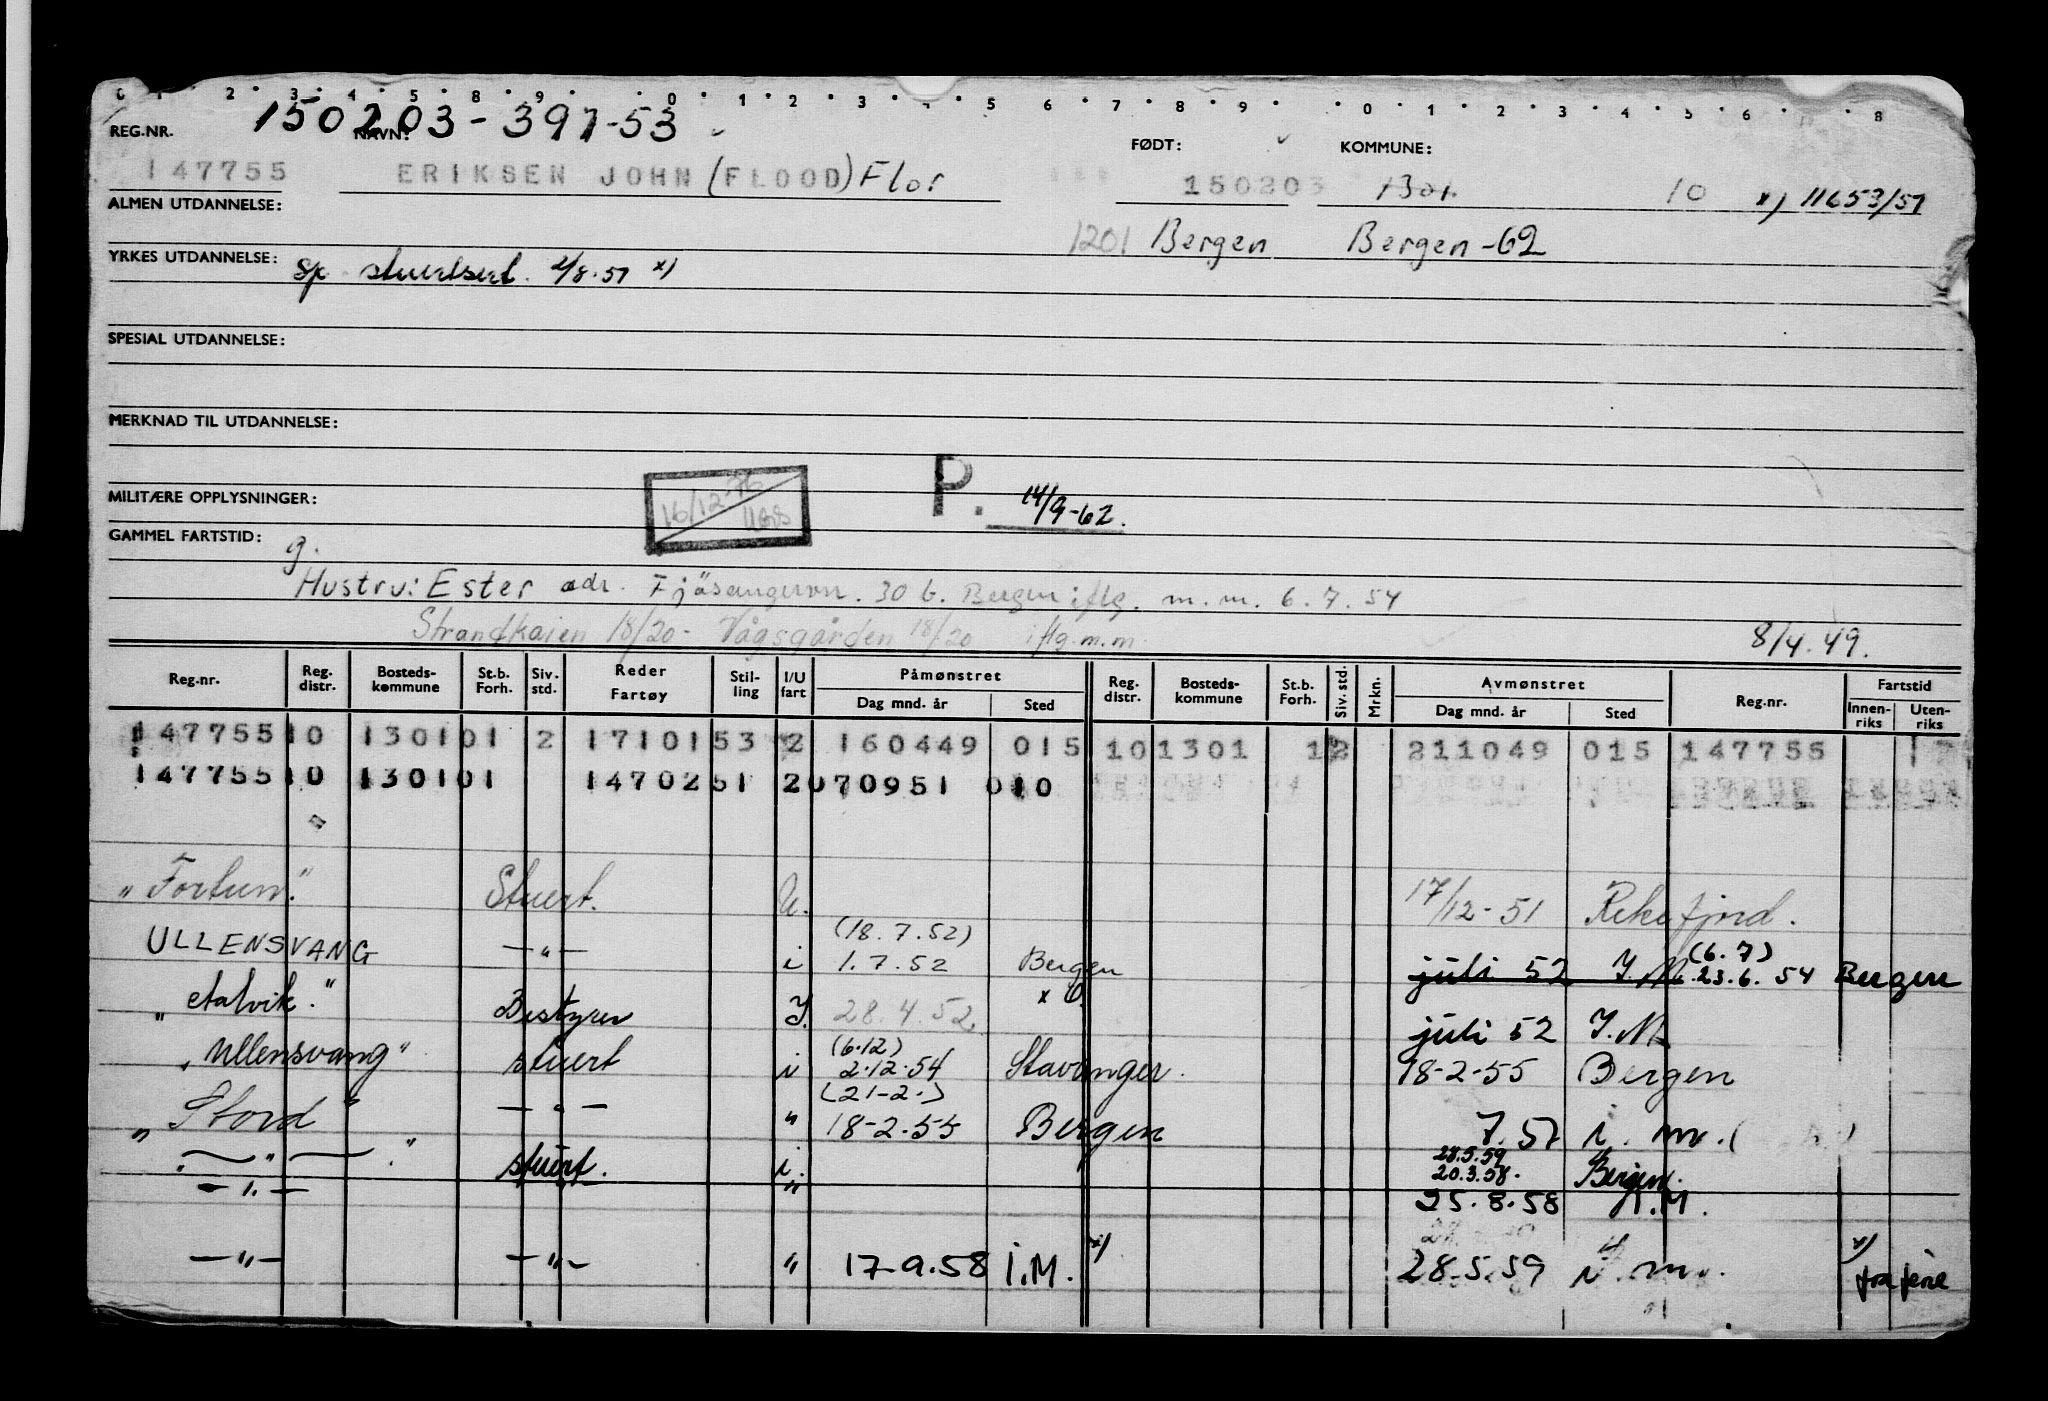 0 1 2 3 4 5 8 9 0 1 2 3 5 6 7 8 9 0 1 2 3 4 5 6 8
REG.NR. 150203-397-53 NAVN: FØDT: KOMMUNE:
147755 ERIKSEN JOHN (FLOOD) Flor 150203 1301 10 x) 11653/51
ALMEN UTDANNELSE:
1201 Bergen Bergen -62
YRKES UTDANNELSE: Sp stuertsert. 2/8.51 x)
SPESIAL UTDANNELSE:
MERKNAD TIL UTDANNELSE:
MILITÆRE OPPLYSNINGER: 16/12-76 P. 14/9-62.
GAMMEL FARTSTID: g.
Hustru: Ester adr. Fjösangervn. 30 b. Bergen iflg. m.m. 6.7.54
Strandkaien 18/20 - Vågsgården 18/20 iflg.m.m. 8/4.49.
Reg.nr. Reg. distr. Bosteds- kommune St.b. Forh. Siv. std. Reder Fartøy Stil- ling I/U fart Påmønstret Reg. distr. Bosteds- kommune St.b. Forh. Siv. std. Mrkn. Avmønstret Reg.nr. Fartstid
Dag mnd. år Sted Dag mnd. år Sted Innen- riks Uten- riks
147755 10 1301 01 2 17101 53 2 160449 015 10 1301 1 2 211049 015 147755
147755 10 1301 01 14702 51 2 070951 010
"Fortun." Stuert. U. 17/12-51 Rekefjord.
(18.7.52)
ULLENSVANG —"— i 1.7.52 Bergen juli 52 I.M. (6.7) 23.6.54 Bergen
"Aalvik." Bestyrer I. 28.4.52 juli 52 I.M.
(6.12)
"Ullensvang" stuert i 2.12.54 Stavanger. 18-2-55 Bergen
(21-2.)
"Stord" —"— " 18-2.55 Bergen 7.57 i.m.
28.5.59
—"— stuert. i. 20.3.58. Bergen.
—"— " 25.8.58 I.M.
—"— —"— " 17.9.58 I.M. x) 28.5.59 i.m. x) fra ferie